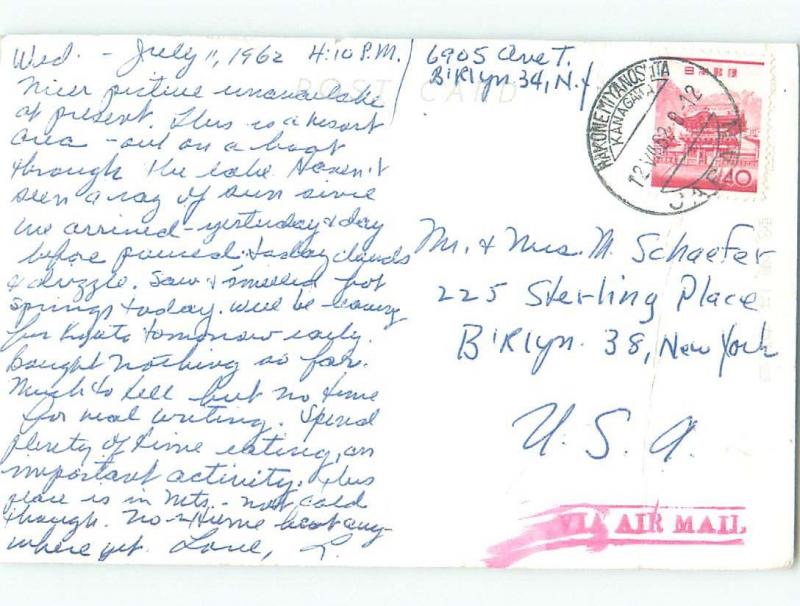 Wed. - July 11, 1962 4:10 P.M.
Nicer picture unavailable
at present. This is a resort
area - out on a boat
through the lake. Haven't
seen a ray of sun since
we arrived - yesterday & day
before poured & today clouds
& drizzle. Saw & smelled hot
springs today. Will be leaving
for Kyoto tomorrow early.
Bought nothing so far.
Much to tell but no time
for real writing. Spend
plenty of time eating, an
important activity. This
place is in Mts. - not cold
though. No extreme heat any-
where yet. Love, L.
6905 Ave T.
B'klyn 34, N.Y
POST CARD
HAKONEMIYANOSHITA
KANAGAWA
12.VII.62. 8-12
JAPAN
日本郵便
40
Mr. & Mrs. M. Schaefer
225 Sterling Place
B'klyn. 38, New York
U.S.A.
VIA AIR MAIL